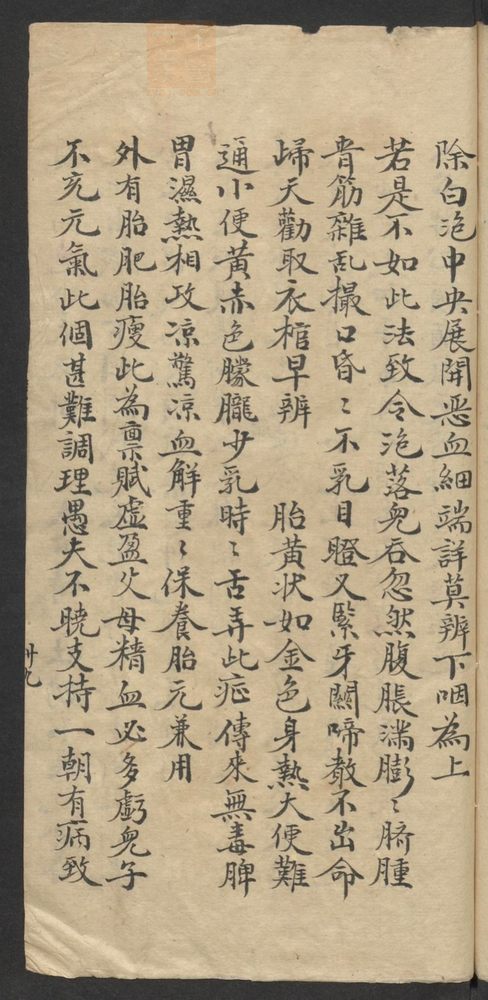 除白泡中央展開恶血細端詳莫辨下咽為上
若是不如此法致令泡落兒吞忽然腹脹滿膨〻臍腫
青筋雜乱撮口昏〻不乳目瞪又緊牙關啼散不出命
歸天勸取衣棺早辨　　胎黃状如金色身熱大便難
通小便黃赤色朦朧少乳時〻舌弄此症傳來無毒脾
胃濕熱相攻凉驚凉血解重〻保養胎元兼用
外有胎肥胎瘦此為禀賦虛盈父母精血必多虧兒子
不充元氣此個甚難調理愚夫不曉支持一朝有病致
卅九